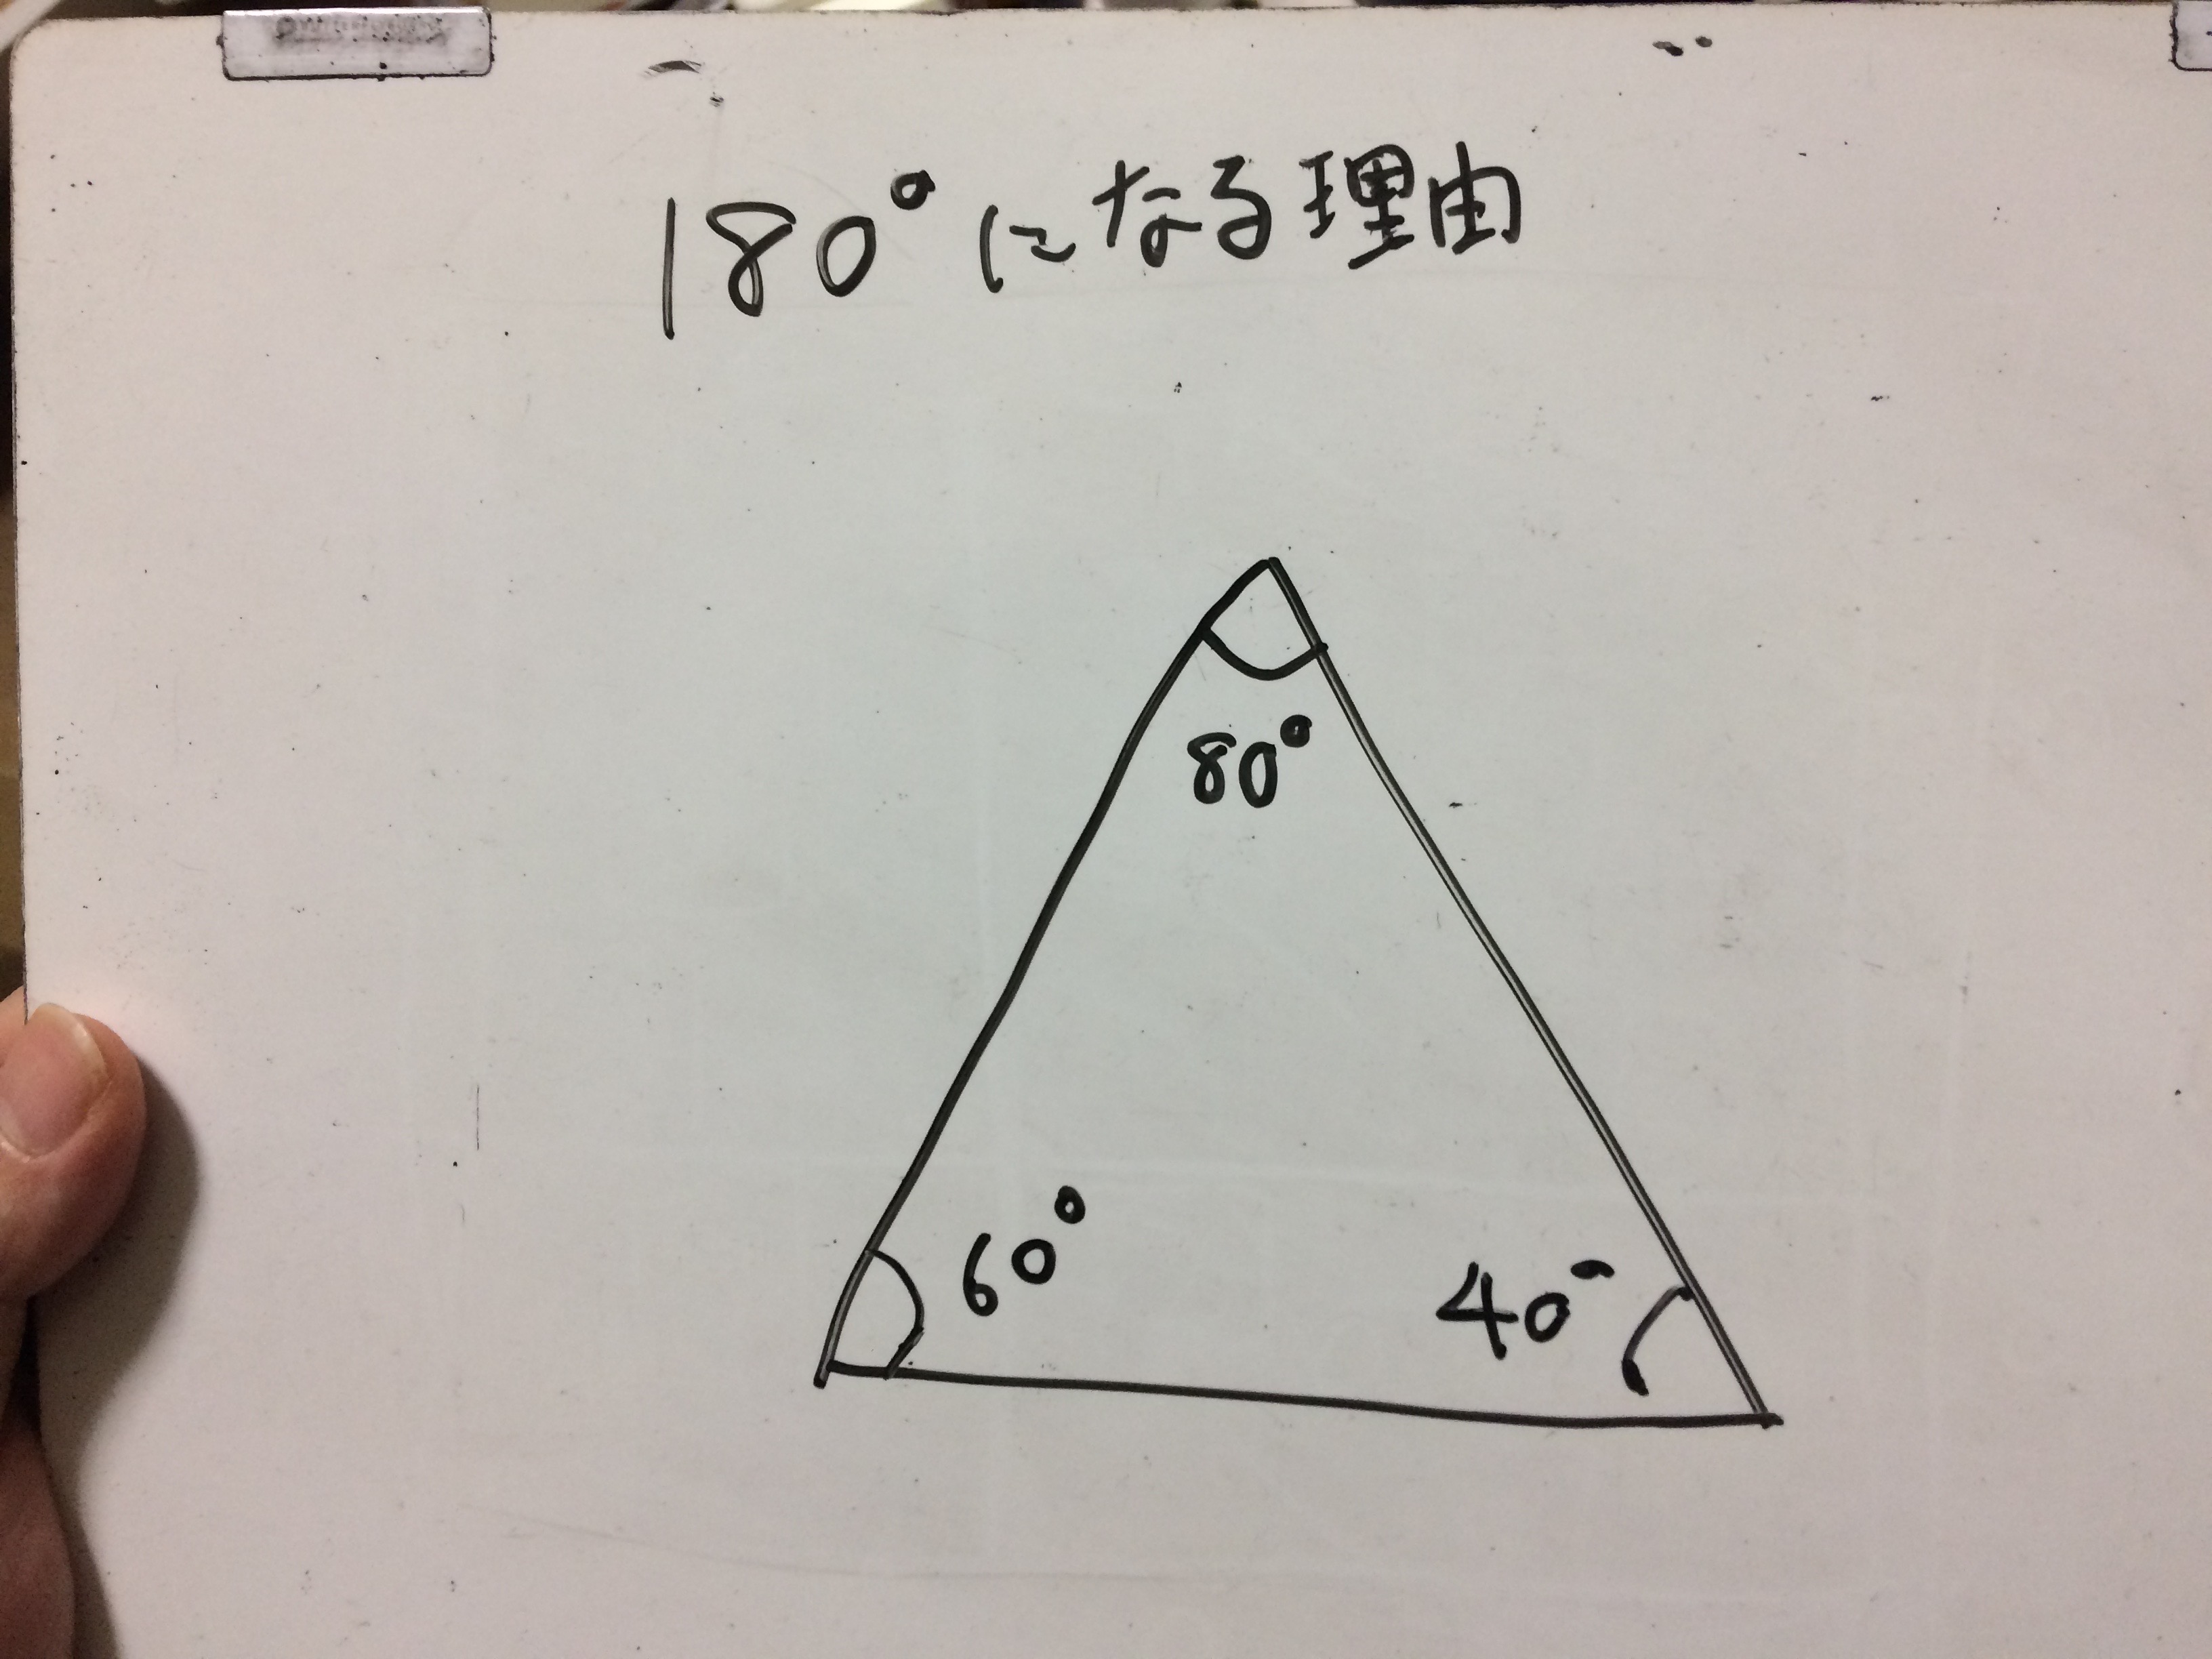 180°になる理由
80°
60°
40°